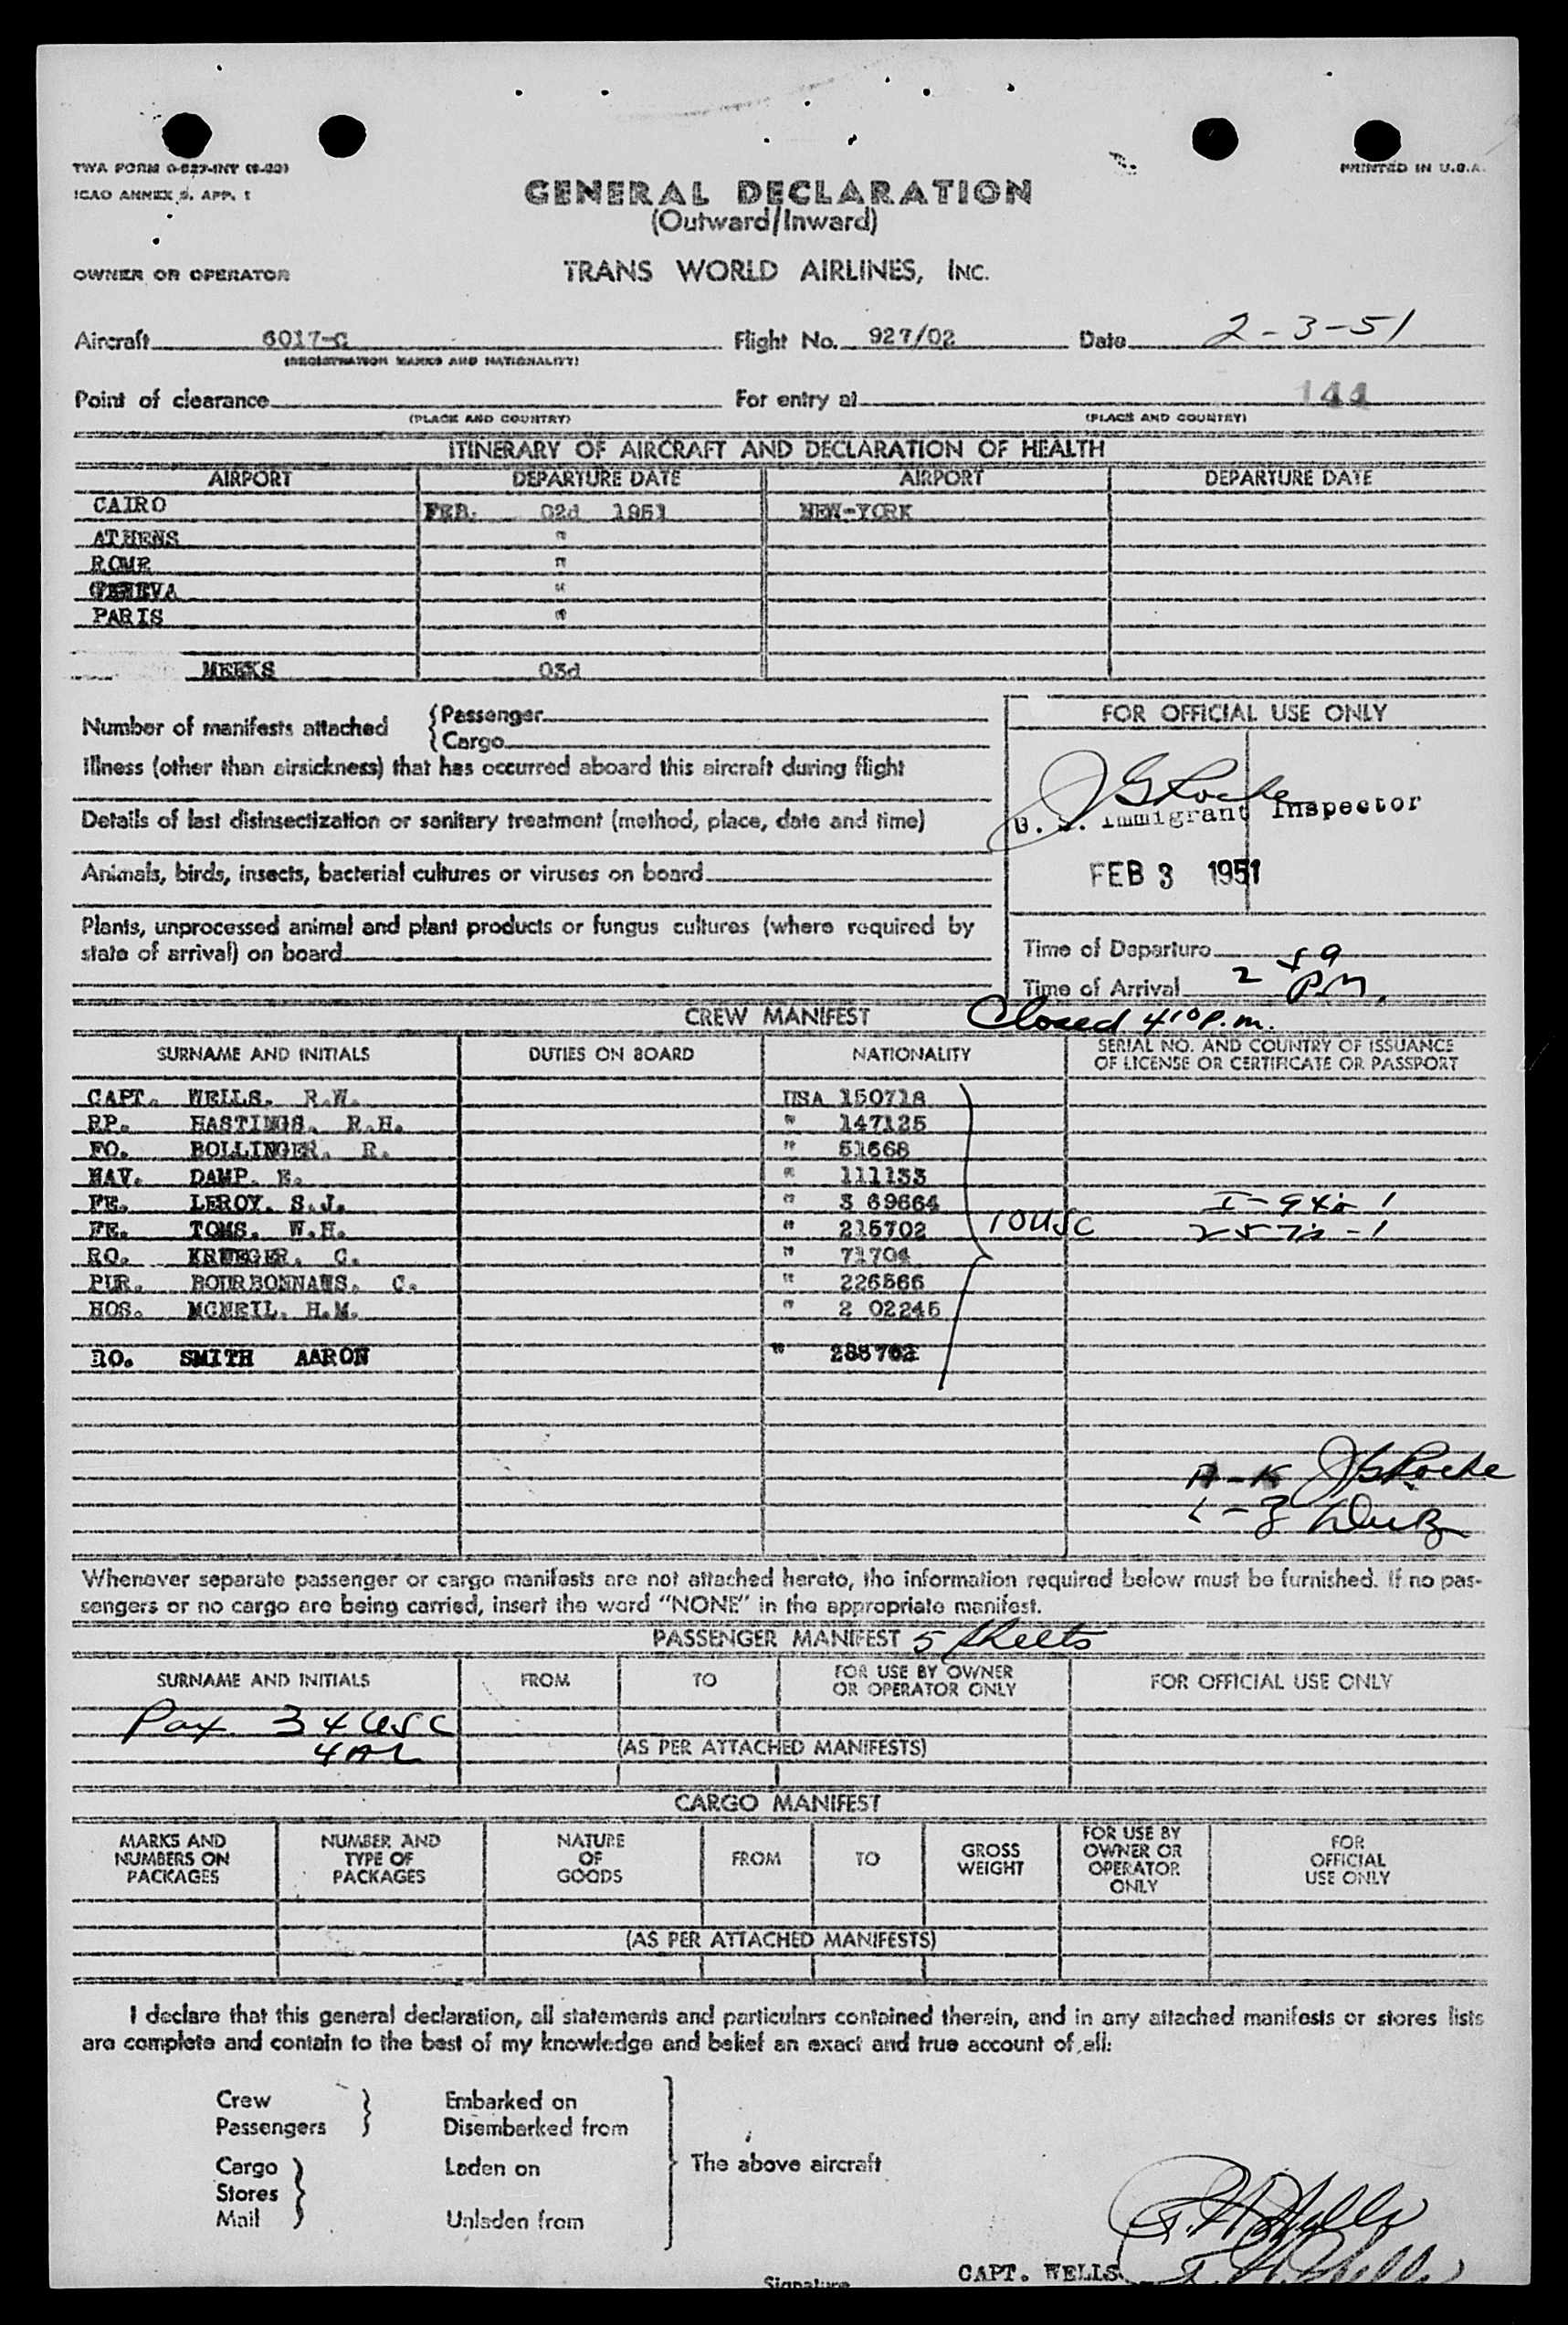 TWA FORM O-527-INT
ICAO ANNEX 9, APP. 1
PRINTED IN U.S.A.
GENERAL DECLARATION
(Outward/Inward)
OWNER OR OPERATOR TRANS WORLD AIRLINES, INC.
Aircraft 6017-C Flight No. 927/02 Date 2-3-51
(REGISTRATION MARKS AND NATIONALITY)
Point of clearance For entry at 144
(PLACE AND COUNTRY) (PLACE AND COUNTRY)
ITINERARY OF AIRCRAFT AND DECLARATION OF HEALTH
AIRPORT DEPARTURE DATE AIRPORT DEPARTURE DATE
CAIRO FEB. 02d 1951 NEW-YORK
ATHENS "
ROME "
GENEVA "
PARIS "
MEEKS 03d
Number of manifests attached {Passenger
{Cargo
Illness (other than airsickness) that has occurred aboard this aircraft during flight
Details of last disinsectization or sanitary treatment (method, place, date and time)
Animals, birds, insects, bacterial cultures or viruses on board
Plants, unprocessed animal and plant products or fungus cultures (where required by
state of arrival) on board
FOR OFFICIAL USE ONLY
J G Roche
U. S. Immigrant Inspector
FEB 3 1951
Time of Departure
Time of Arrival 2 59 P.M.
CREW MANIFEST Closed 4 10 p.m.
SURNAME AND INITIALS DUTIES ON BOARD NATIONALITY SERIAL NO. AND COUNTRY OF ISSUANCE
OF LICENSE OR CERTIFICATE OR PASSPORT
CAPT. WELLS. R.W. USA 150718
RP. HASTINGS. R.H. " 147125
FO. BOLLINGER. R. " 51668
NAV. DAMP. E. " 111133
FE. LEROY. S.J. " 3 69664
FE. TOMS. W.H. " 215702 10 USC
RO. KRUEGER. C. " 71704
PUR. BOURBONNAIS. C. " 226566
HOS. MCNEIL. H.M. " 2 02245
RO. SMITH AARON "
A-K JG Roche
L-Z
Whenever separate passenger or cargo manifests are not attached hereto, the information required below must be furnished. If no pas-
sengers or no cargo are being carried, insert the word "NONE" in the appropriate manifest.
PASSENGER MANIFEST 5 sheets
SURNAME AND INITIALS FROM TO FOR USE BY OWNER
OR OPERATOR ONLY FOR OFFICIAL USE ONLY
Pax 34 USC
4 AL
(AS PER ATTACHED MANIFESTS)
CARGO MANIFEST
MARKS AND
NUMBERS ON
PACKAGES
NUMBER AND
TYPE OF
PACKAGES
NATURE
OF
GOODS
FROM
TO
GROSS
WEIGHT
FOR USE BY
OWNER OR
OPERATOR
ONLY
FOR
OFFICIAL
USE ONLY
(AS PER ATTACHED MANIFESTS)
I declare that this general declaration, all statements and particulars contained therein, and in any attached manifests or stores lists
are complete and contain to the best of my knowledge and belief an exact and true account of all:
Crew } Embarked on
Passengers } Disembarked from
Cargo } Laden on The above aircraft
Stores }
Mail } Unladen from
CAPT. WELLS
Signature